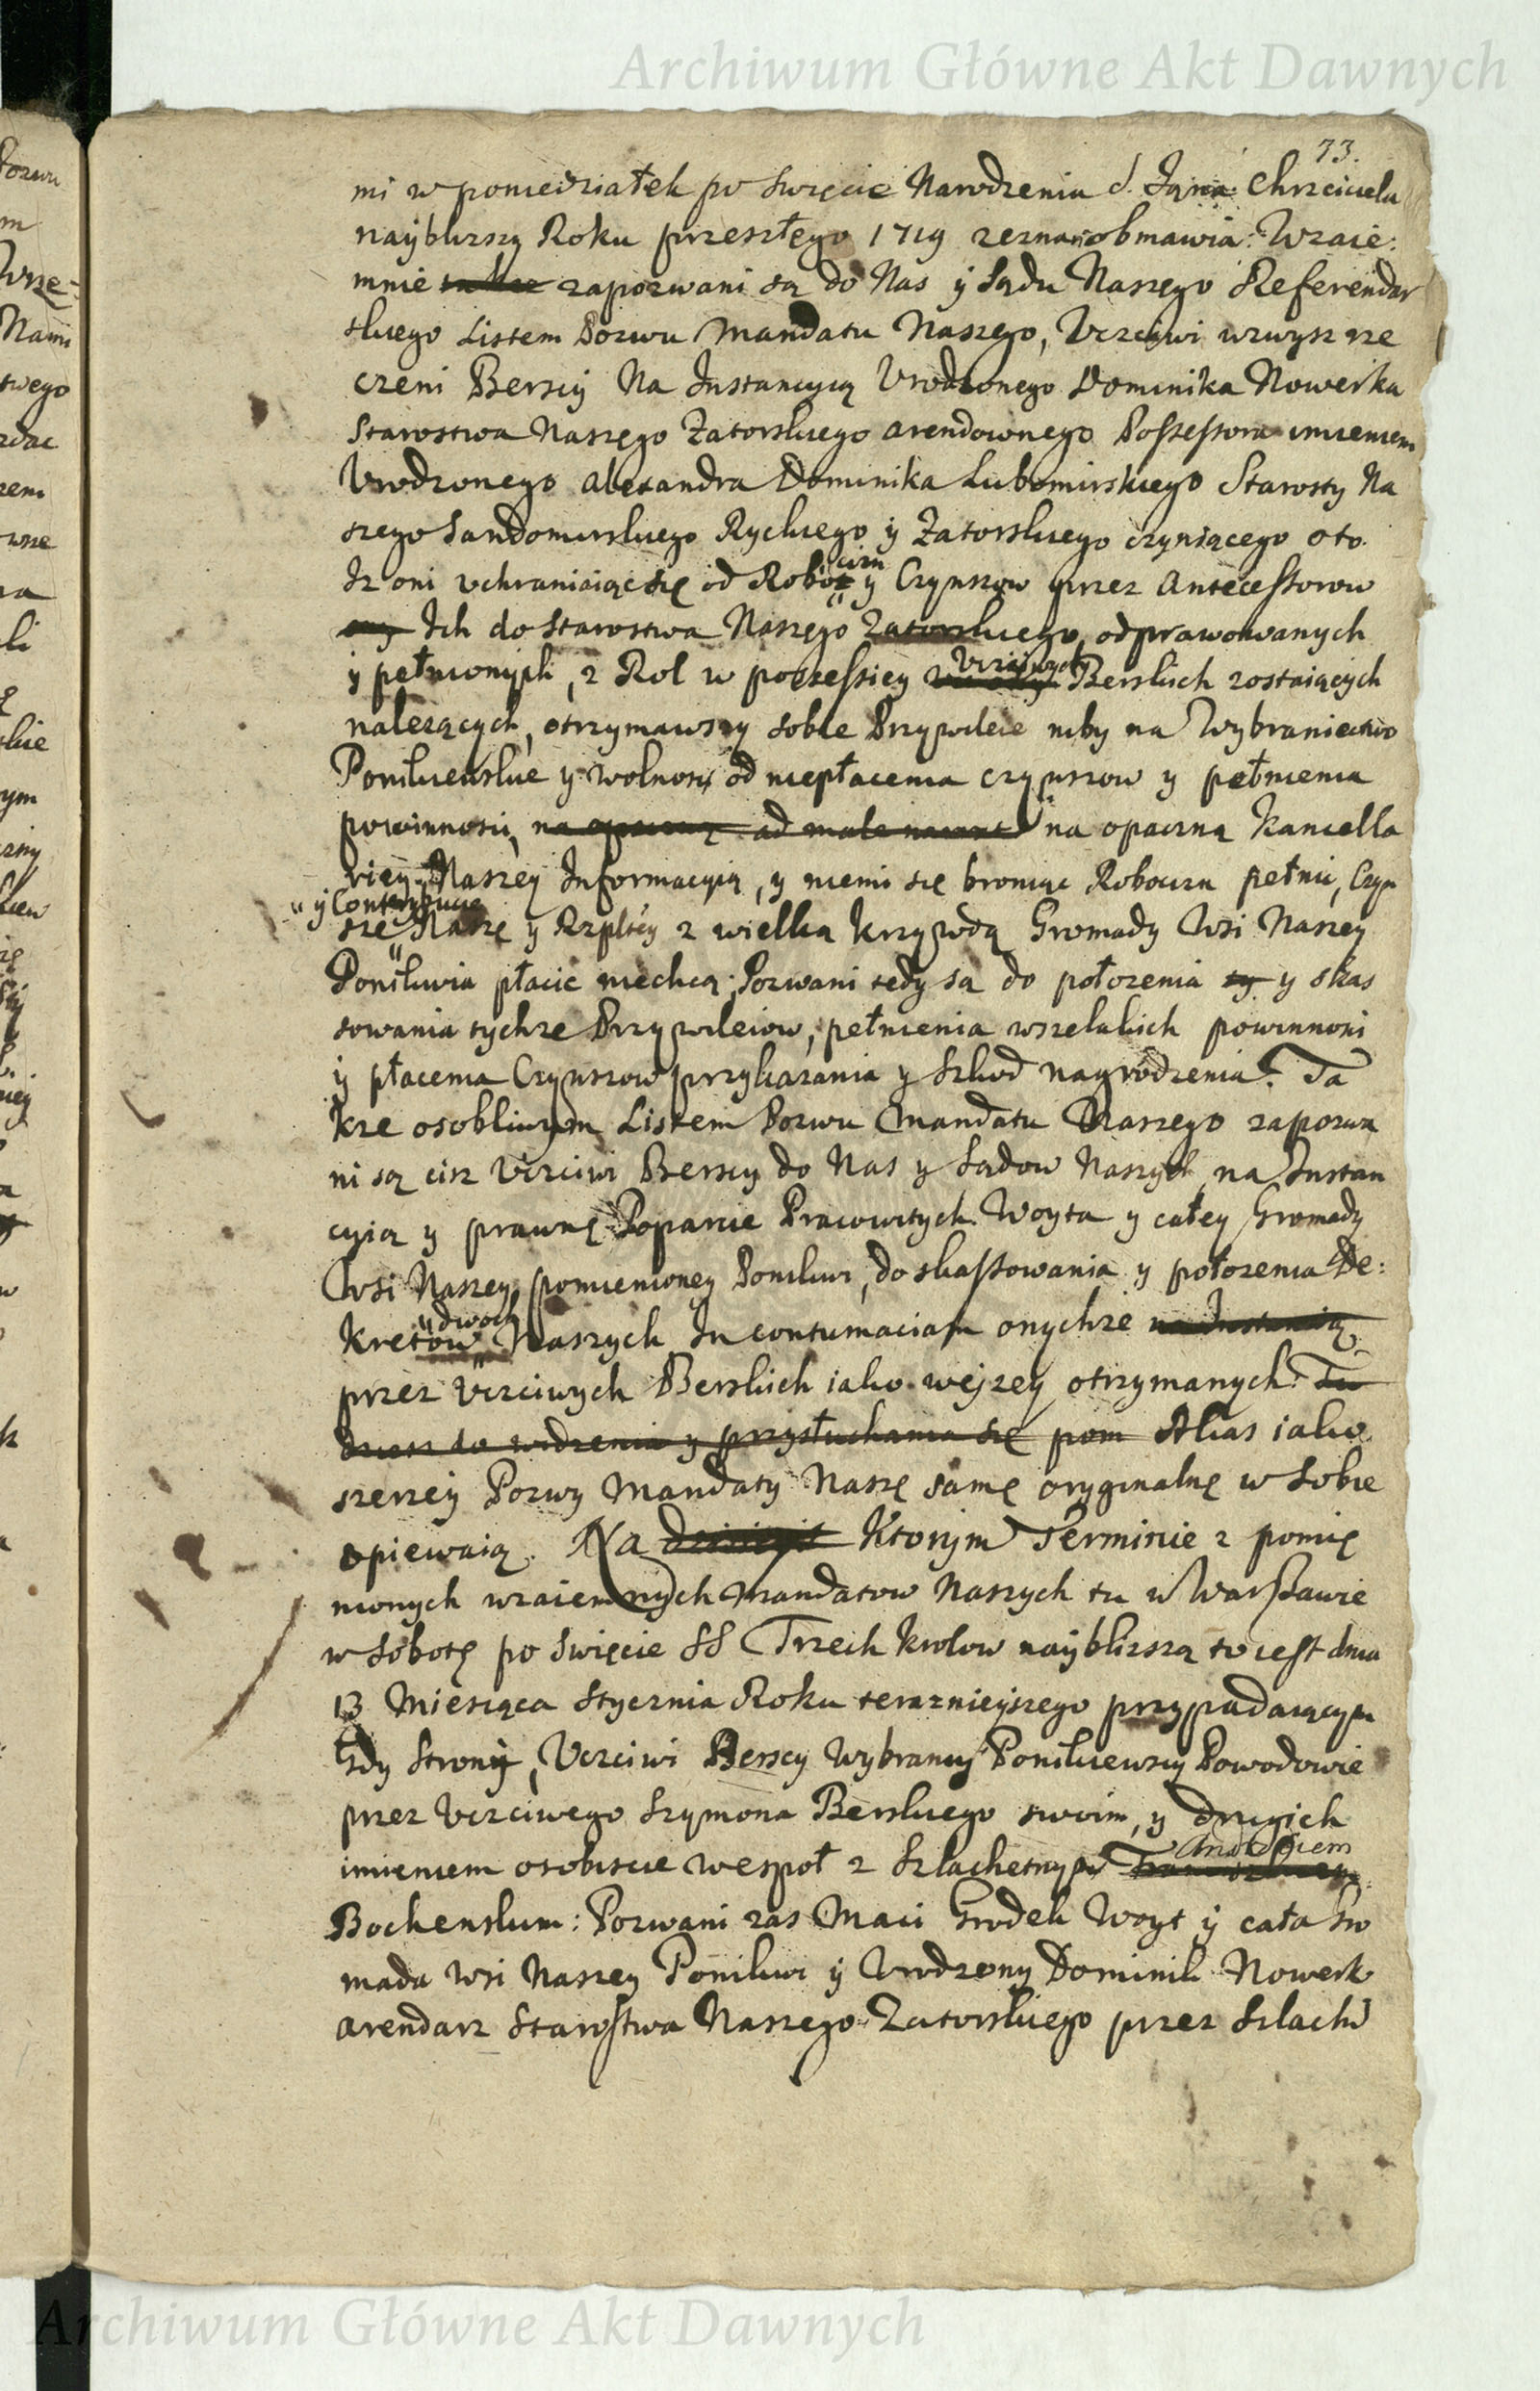 Archiwum Główne Akt Dawnych
73.
mi w poniedziałek po Swięcie Narodzenia S. Jana Chrzciciela
naybliższy Roku przeszłego 1719 zeznano obmawia: Wzaie:
mnie zapozwani są do Nas y Sądu Naszego Referendar
skiego Listem Pozwu Mandatu Naszego, Vczciwi wzwysz rze
czeni Berscy Na Instancyą Vrodzonego Dominika Nowerka
Starostwa Naszego Zatorskiego arendownego Possessora imieniem
Vrodzonego Alexandra Dominika Lubomirskiego Starosty Na
szego Sandomirskiego Ryckiego y Zatorskiego czyniącego oto.
Iz oni vchraniaiąc się od Robocizn y Czynszow przez Antecessorow
Ich do Starostwa Naszego Zatorskiego, odprawowanych
y pełnionych, z Rol w possessiey Vczciwych Berskich zostaiących
nalezących, otrzymawszy sobie Przywileie niby na Wybraniectwo
Ponikiewskie y wolnosc od niepłacenia czynszow y pełnienia
powinnosci, na opaczną ad male narrata na opaczną Kancella
riey Naszey Informacyią, y niemi się broniąc Robocizn pełnic, Czyn
" y Contrybucie
sze Nasze y Rzpltey z wielką krzywdą Gromady Wsi Naszey
Ponikwia płacic niechcą; Pozwani tedy są do połozenia y skas
sowania tychze Przywileiow, pełnienia wszelakich powinnosci
y płacenia Czynszow przykazania y Szkod nagrodzenia. Ta
kze osobliwym Listem Pozwu Mandatu Naszego zapozwa
ni są ciz Vczciwi Berscy do Nas y Sądow Naszych, na Instan
cyią y prawnę Poparcie Pracowitych Woyta y całey Gromady
Wsi Naszey pomienioney Ponikwi, do skassowania y połozenia De:
kretow " dwoch Naszych In contumaciam onychze na Instancią
przez Vczciwych Berskich iako wejzey otrzymanych. Tu
dziesz do widzenia y przysłuchania się pom Alias iako
szerzey Pozwy Mandaty Naszę samę oryginalnę w sobie
opiewaią. Na Ktorym Terminie z pomię
nionych wzaiemnych Mandatow Naszych tu w Warszawie
w Sobotę po Swięcie SS Trzech Krolow naybliższą to iest dnia
13 Miesiąca Stycznia Roku terazniejszego przypadaiącym
Gdy Strony, Vczciwi Berscy Wybrancy Ponikiewscy Powodowie
przez Vczciwego Szymona Berskiego swoim, y drugich
imieniem osobiscie wespoł z Szlachetnym Andrzejem
Bochenskim: Pozwani zas Maci Grodek Woyt y cała Gro
mada Wsi Naszey Ponikwi y Vrodzony Dominik Nowerk
arendarz Starostwa Naszego Zatorskiego przez Szlach
Archiwum Główne Akt Dawnych